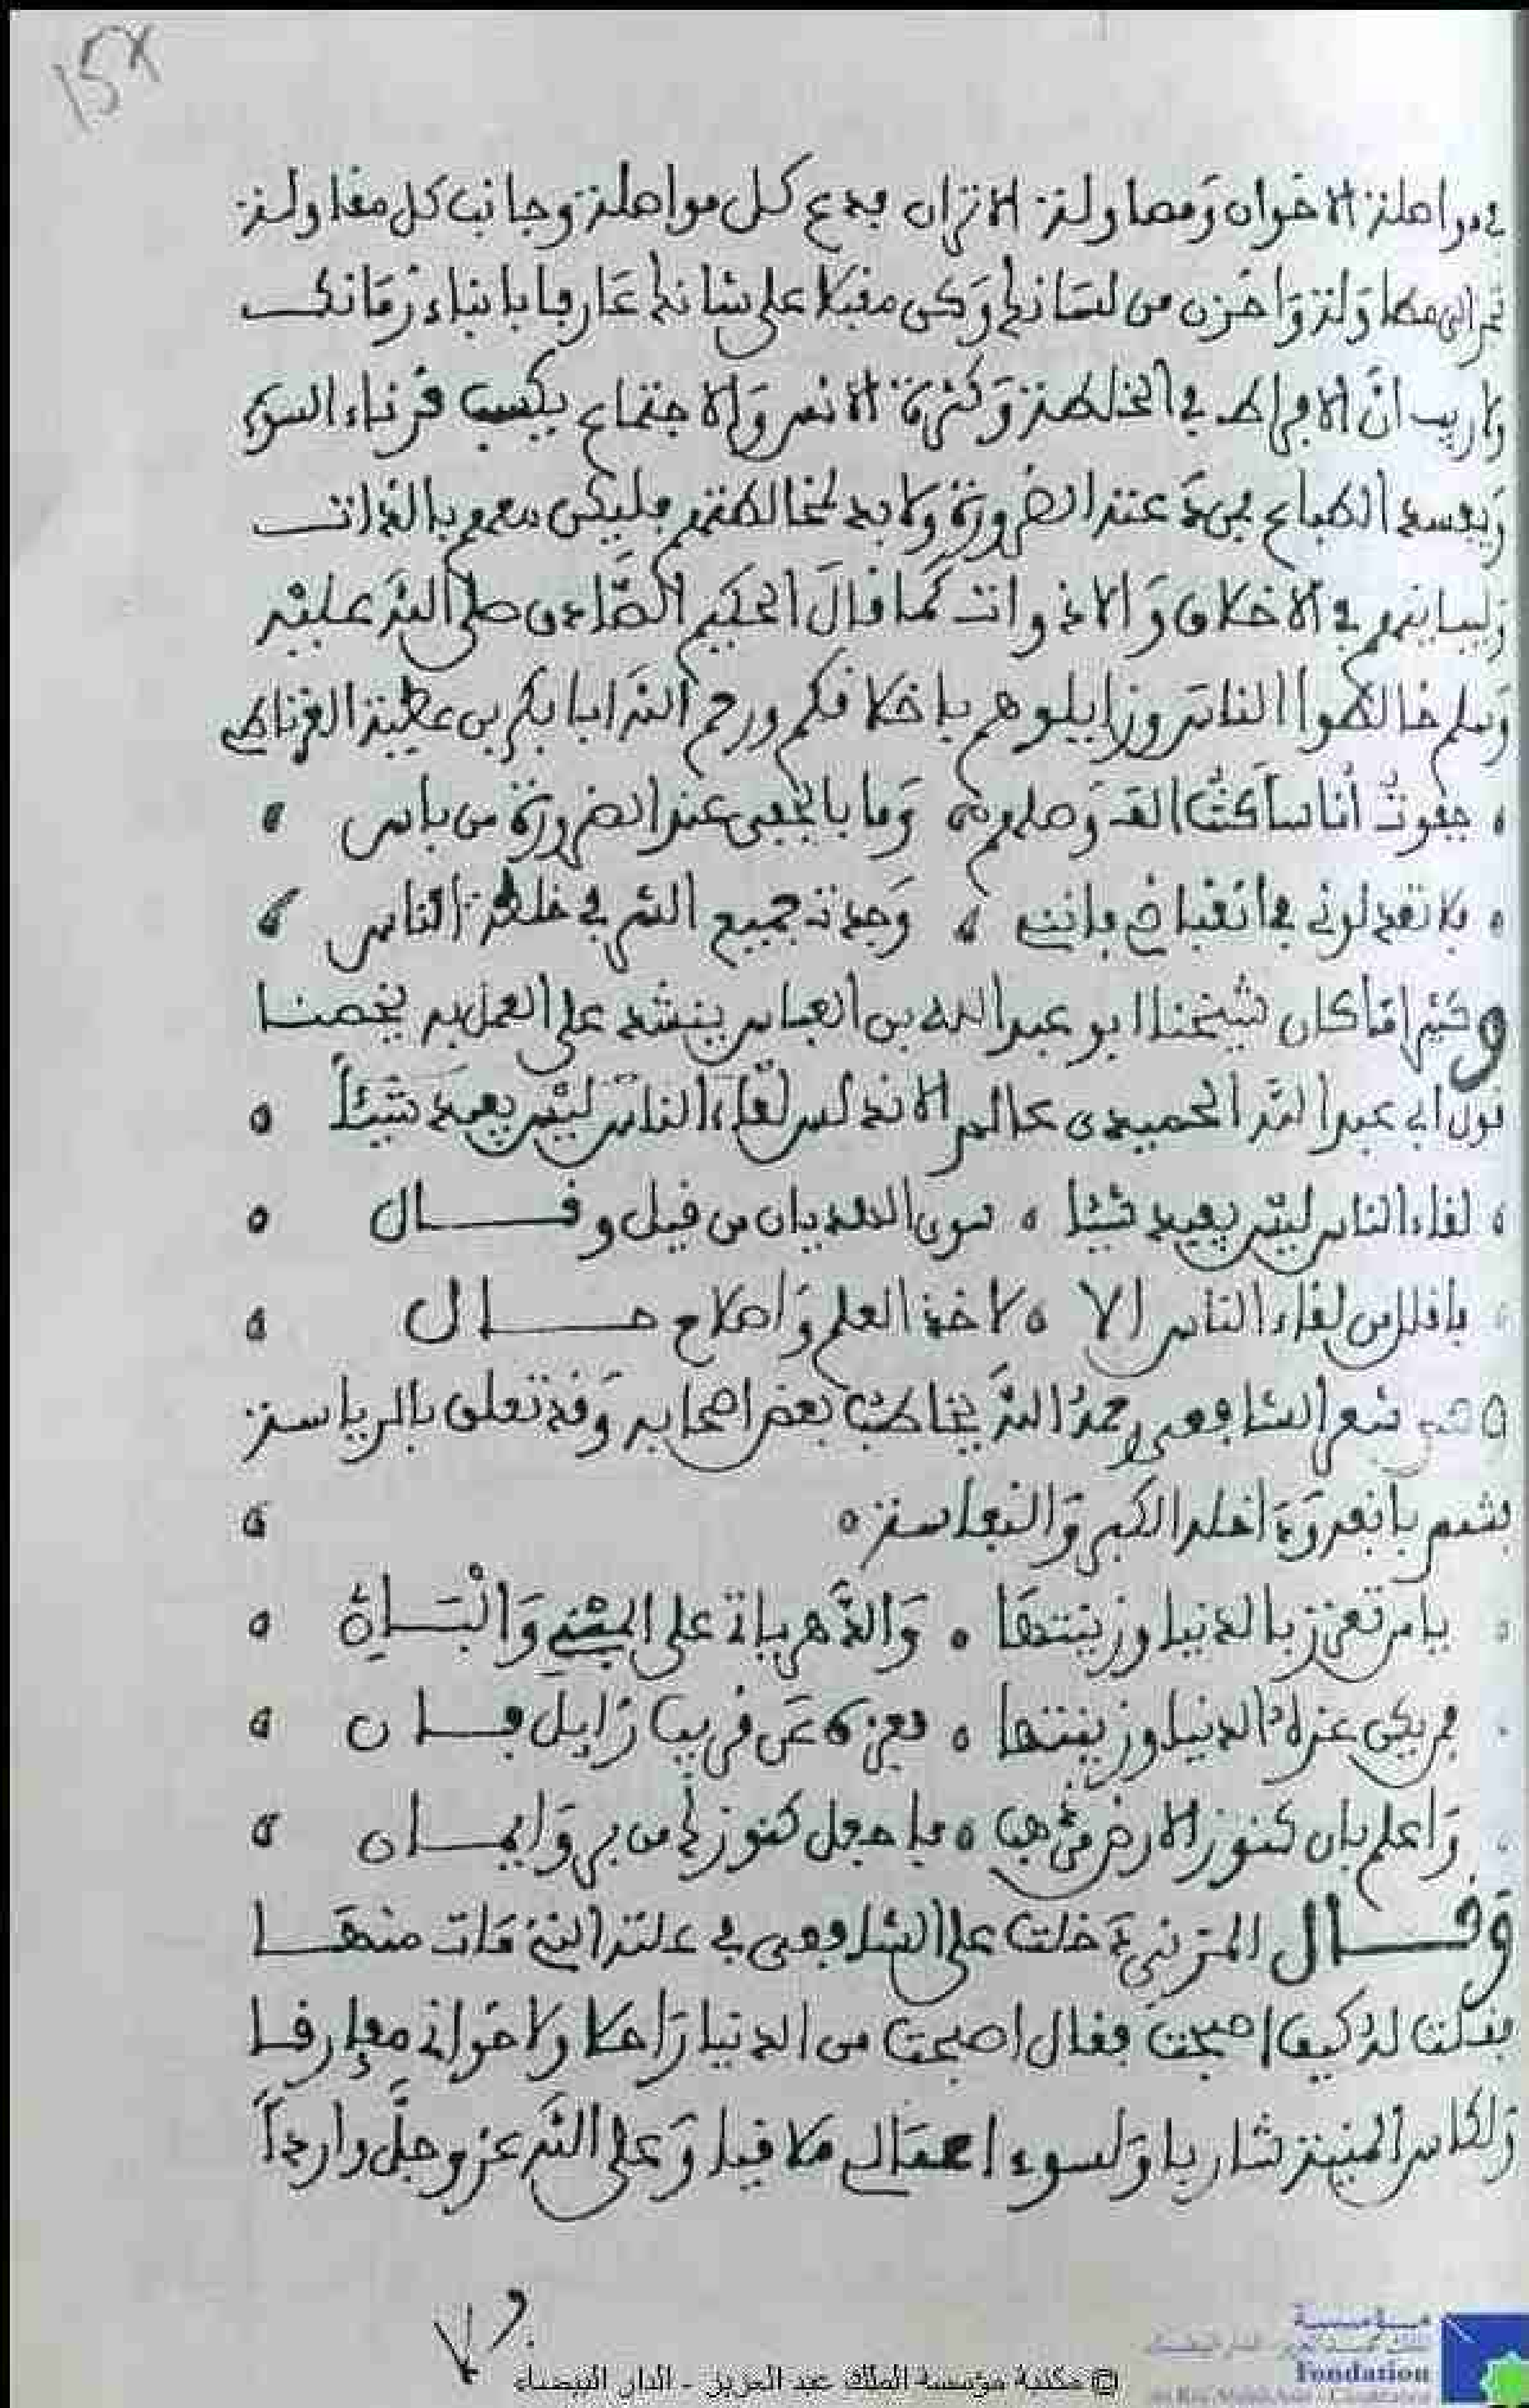 في مواصلة الاخوان ومصاولة الاقران فدع كل مواصلة وجانب كل مقاولة
تجر الى مطاولة واخزن من لسانك وكن مقبلا على شانك عارفا بابناء زمانك
ولا ريب ان الافراط في الخلطة وكثرة الانس والاجتماع يكسب قرناء السوء
ويفسد الطباع فمن دعته الضرورة ولا بد لمخالطتهم فليكن معهم بالذات
ويباينهم في الاخلاق والادوات كما قال الحكيم الصادق صلى الله عليه
وسلم خالطوا الناس وزايلوهم باخلاقكم ورحم الله ابا بكر بن عطية الغرناطي
جفوت أناسا كنت الف وصلهم وما بالجفى عند الضرورة من باس
فلا تعذلوني في انقباضي فانني وجدت جميع الشر في خلطة الناس
وكثيرا ما كان شيخنا ابو عبد الله بن العباس ينشد على العمل به يحضنا
قول ابي عبد الله الحميدي عالم الاندلس لقاء الناس ليس يفيد شيئاً
لقاء الناس ليس يفيد شيئا سوى الهذيان من قيل وقال
فاقلل من لقاء الناس الا لاخذ العلم واصلاح حال
شعر الشافعي رحمه الله يخاطب بعض اصحابه وقد تعلق بالرياسة
فشمم بانفه وداخله الكبر والنفاسة
يا من تعزز بالدنيا وزينتها والدهر ياتي على المبني والباني
فمن يكن عزه الدنيا وزينتها فعزه عن قريب زايل فان
واعلم بان كنوز الارض من ذهب فاجعل كنوزك من بر وايمان
وقال المزني دخلت على الشافعي في علته التي مات منها
فقلت له كيف اصبحت فقال اصبحت من الدنيا راحلا ولاخواني مفارقا
ولكاس المنية شاربا ولسوء اعمالي ملاقيا وعلى الله عز وجل وارداً
فلا
© مكتبة مؤسسة الملك عبد العزيز - الدار البيضاء
مؤسسة
Fondation